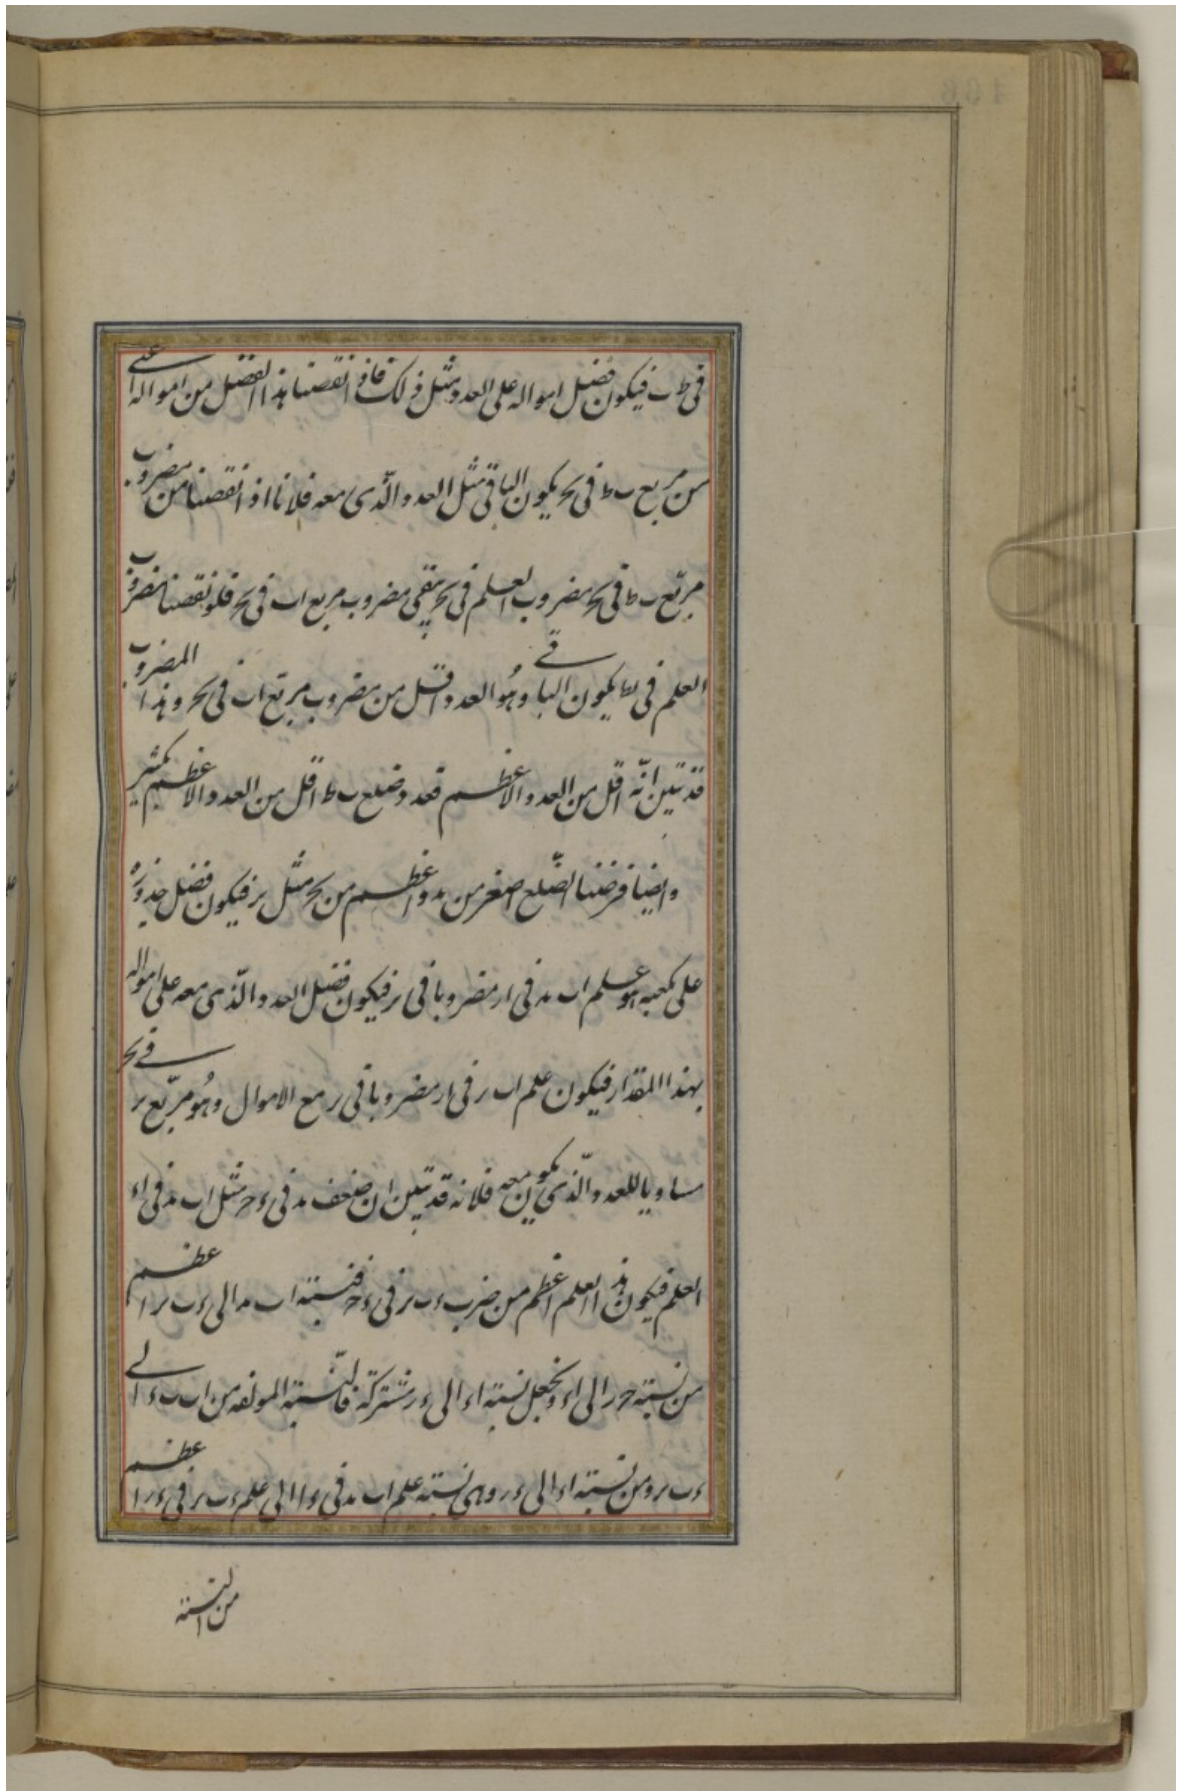 في ط ب فيكون فضل امواله على العدد مثل ذلك فاذا نقصنا هذا الفضل من امواله اعني
من مربع ب ط في بح يكون الباقي مثل العدد والذي معه فلانا اذا نقصنا من مضروب
مربع ب ط في بح مضروب العلم في بح يبقى مضروب مربع اب في بح فلو نقصنا مضروب
العلم في بط يكون الباقي وهو العدد اقل من مضروب مربع اب في بح وهذا المضروب
قد تبين انه اقل من العدد الاعظم فعدد ضلع ب ط اقل من العدد الاعظم بكثير
وايضا فرضنا الضلع اصغر من بد واعظم من بح مثل بز فيكون فضل جذوره
على مكعبه هو علم اب بد في از مضروبا في بز فيكون فضل العدد والذي معه على امواله
بهذا المقدار فيكون علم اب بز في از مضروبا في بز مع الاموال وهو مربع بز في بح
مساويا للعدد والذي يكون معه فلانه قد تبين ان ضعف بد في ء ح مثل اب بد في اء
العلم فيكون هذا العلم اعظم من ضرب ء ب بز في ء ح فنسبة اب بد الى ء ب بز اعظم
من نسبة ح ز الى اء ونجعل نسبة اء الى ء ز مشتركة فالنسبة المولفة من اب ب ء الى
ء ب بز ومن نسبة اء الى ء ز وهى نسبة علم اب بد في ء ا الى علم ء ب بز في ء ز اعظم
من النسبة